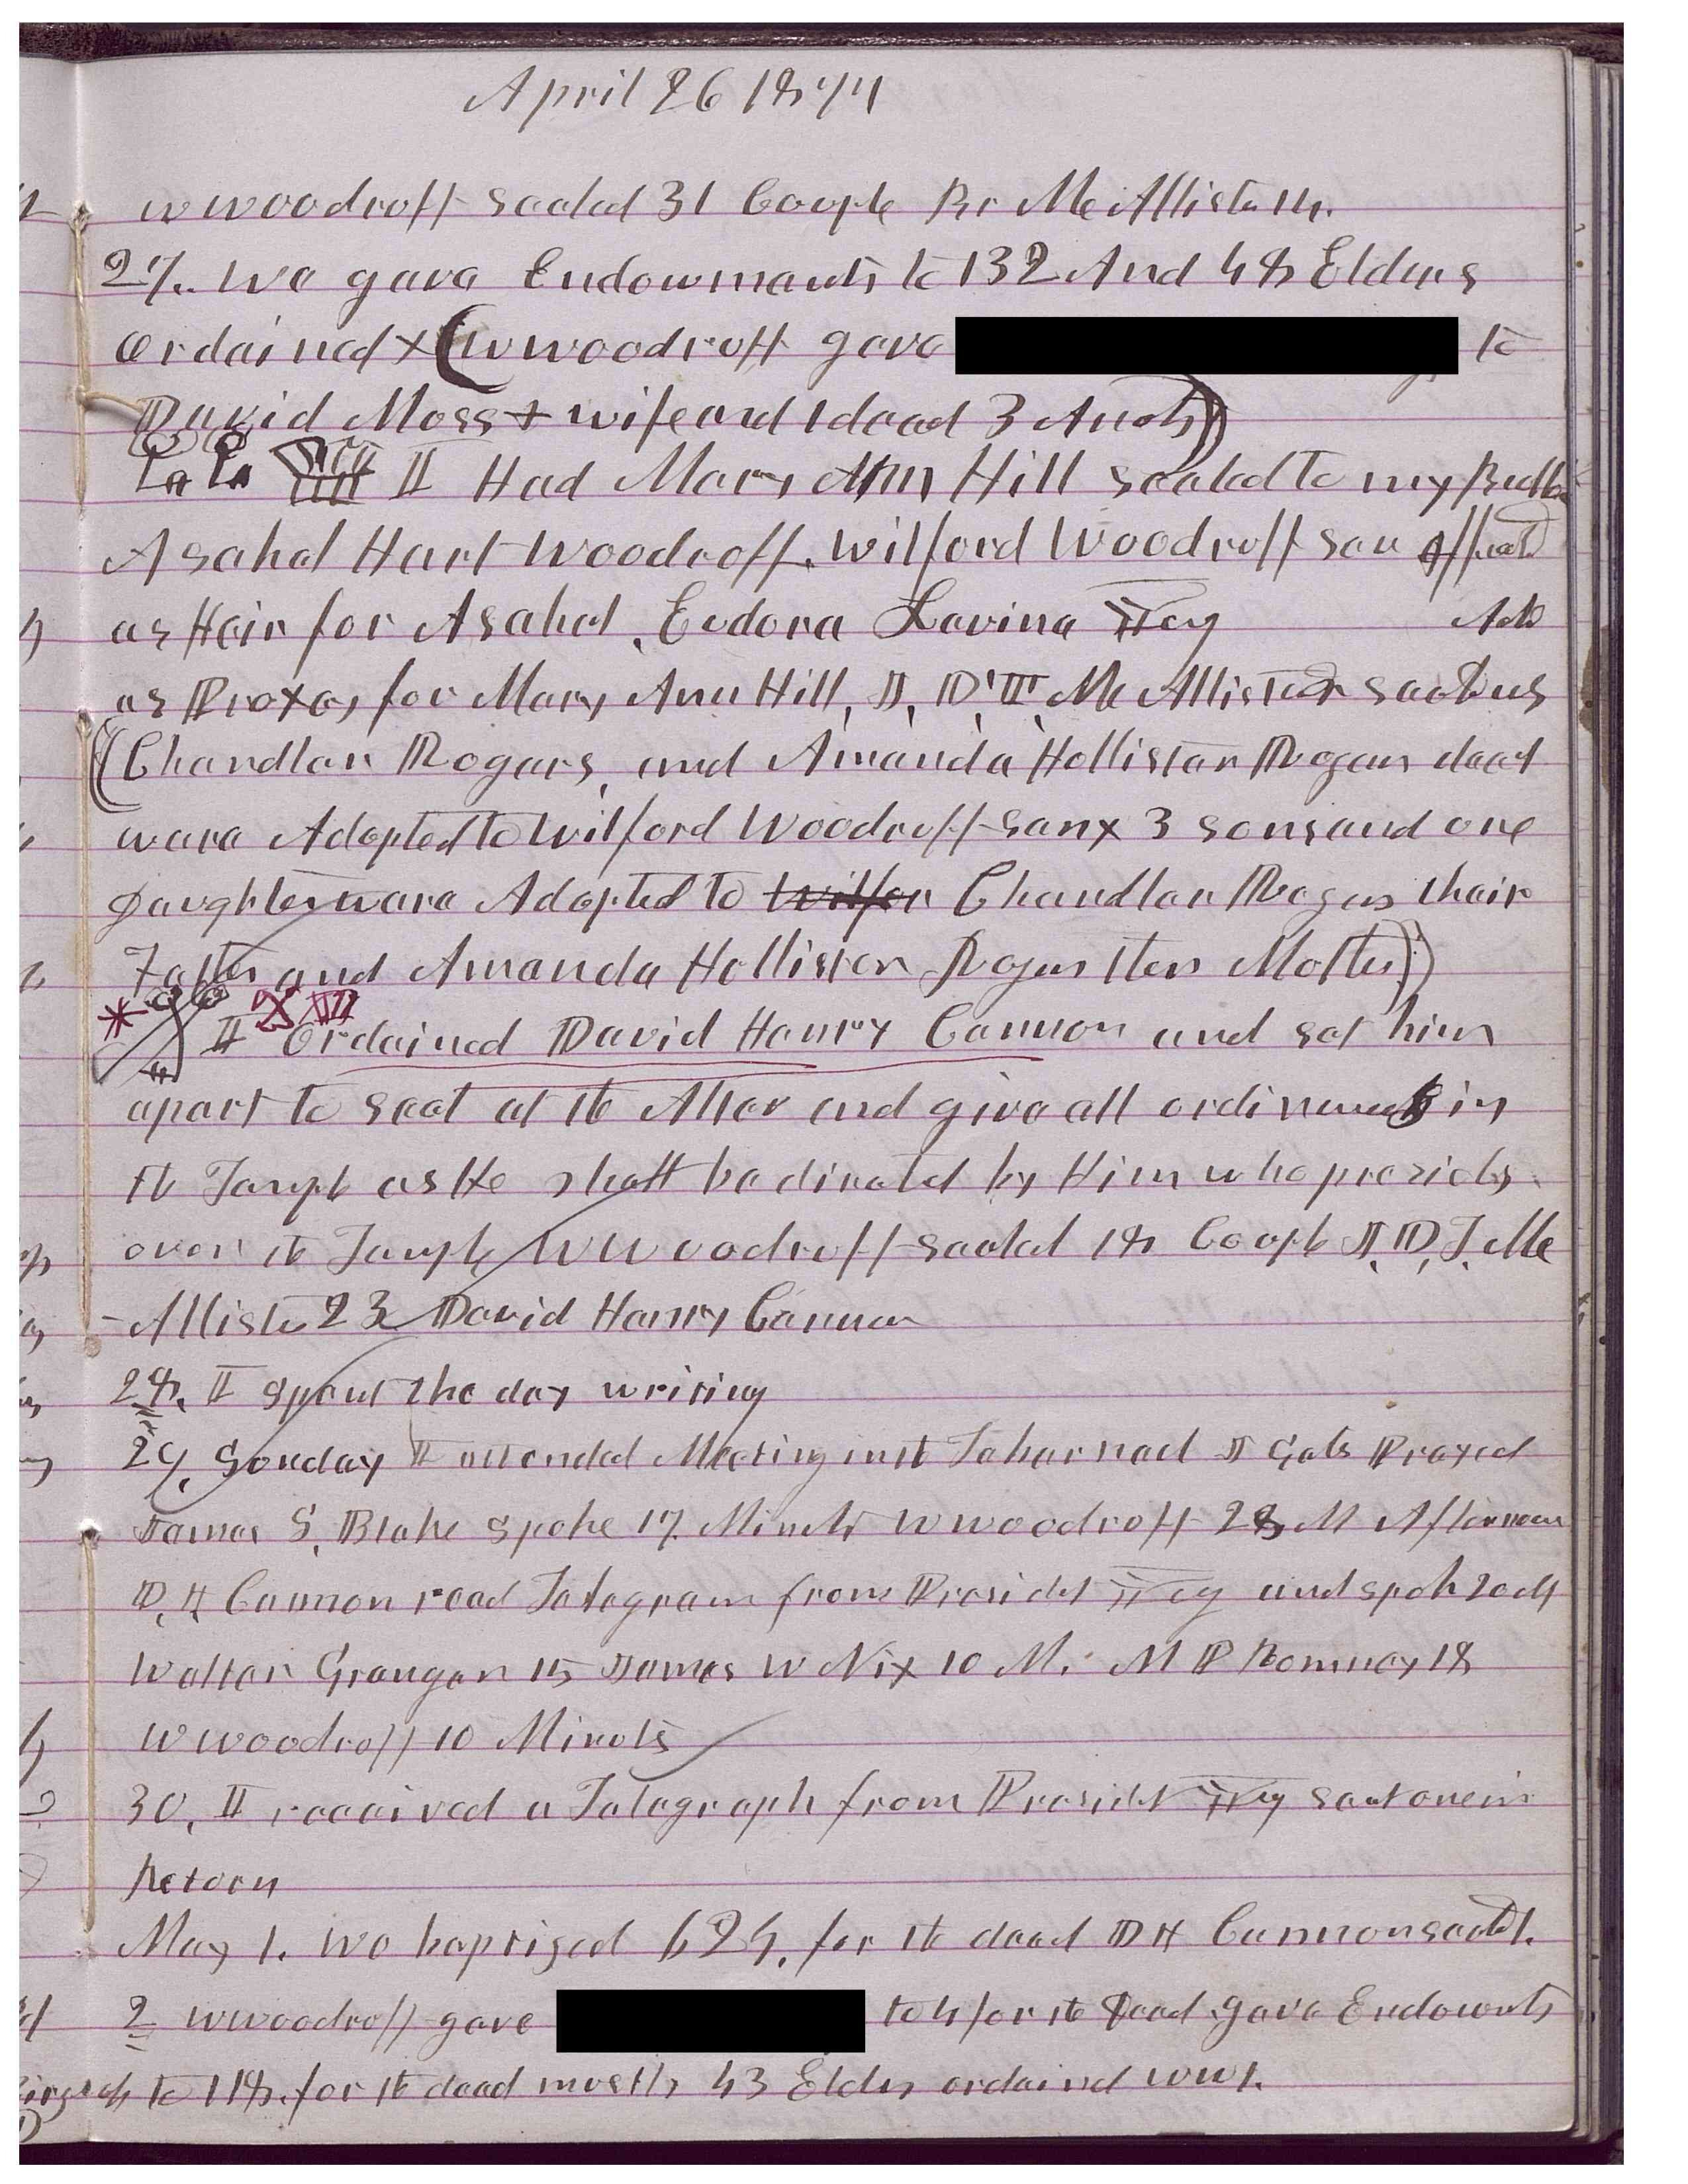 April 26 1877
W Woodruff Sealed 31 Couple Br McAllister 14.
27. We gave Endowments to 132 And 48 Elders
ordained + (W Woodruff gave to
David Moss + wife and 1 dead 3 Anot)
II Had Mary Ann Hill sealed to my Brother
Asahel Hart Woodruff. Wilford Woodruff sen
as Heir for Asahel, Eudora Lovina Young Acted
as Proxey for Mary Ann Hill, J, D, T, McAllister Sealed us
(Chandler Rogers, and Amanda Hollister Rogers dead
were Adopted to Wilford Woodruff sen x 3 sons and one
Daughter were Adopted to Wilfor Chandler Rogers their
Father and Amanda Hollister Rogers their Mother)
I Ordained David Henry Cannon and set him
apart to seal at the Alter and give all ordinances in
the Temple as He shall be directed by Him who presides
over the Temple W Woodruff sealed 18 Couple J, D, T, Mc
Allister 23 David Henry Cannon
28. I spent the day writing
29. Sonday I attended Meeting in the Tabernacl J Gates Prayed
James S, Blake spoke 17 Minets W Woodruff 28 M Afternoon
D, H Cannon read Telegram from Presidet Young and spok 20 M
Walter Granger 15 James W Nix 10 M. M P Romney 18
W Woodruff 10 Minets
30, I received a Telegraph from Presidet Young sent one in
Return
May 1. We baptised 624, for the dead D H Cannon sealed 1.
2 W Woodruff gave to 4 for the Dead gave Endowmts
to 118. for the dead mostly 43 Elders ordaind WW 1.